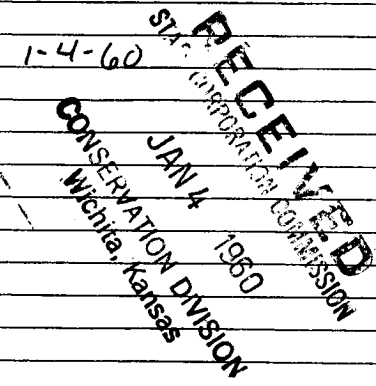 1-4-60
RECEIVED
STATE CORPORATION COMMISSION
JAN 4 1960
CONSERVATION DIVISION
Wichita, Kansas